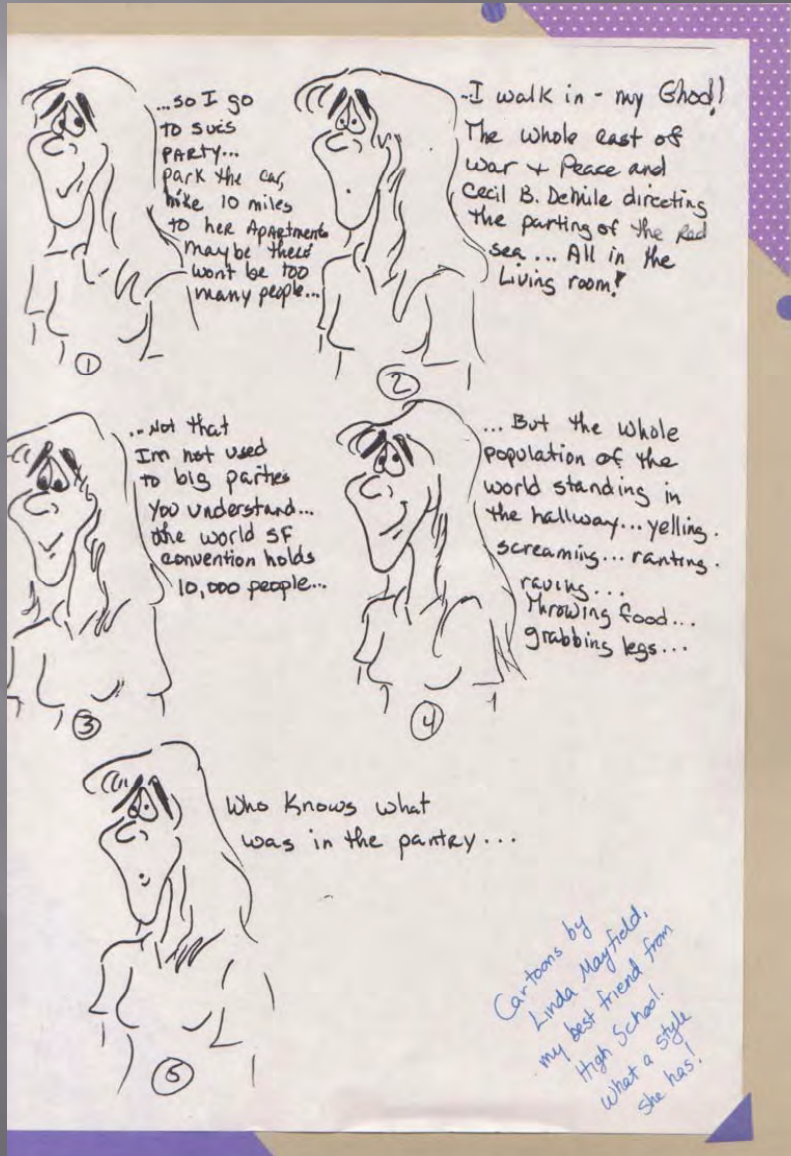 ...so I go
to sues
PARTY...
park the car,
hike 10 miles
to her Apartment
maybe there
wont be too
many people...
①
-I walk in - my Ghod!
The whole cast of
war + Peace and
Cecil B. Demile directing
the parting of the Red
sea... All in the
Living room!
②
...Not that
Im not used
to big parties
You understand...
the world SF
convention holds
10,000 people...
③
...But the whole
population of the
world standing in
the hallway...yelling.
screaming...ranting.
raving...
Throwing food...
grabbing legs...
④
Who Knows what
was in the pantry...
⑤
Cartoons by
Linda Mayfield,
my best friend from
High School.
What a style
she has!